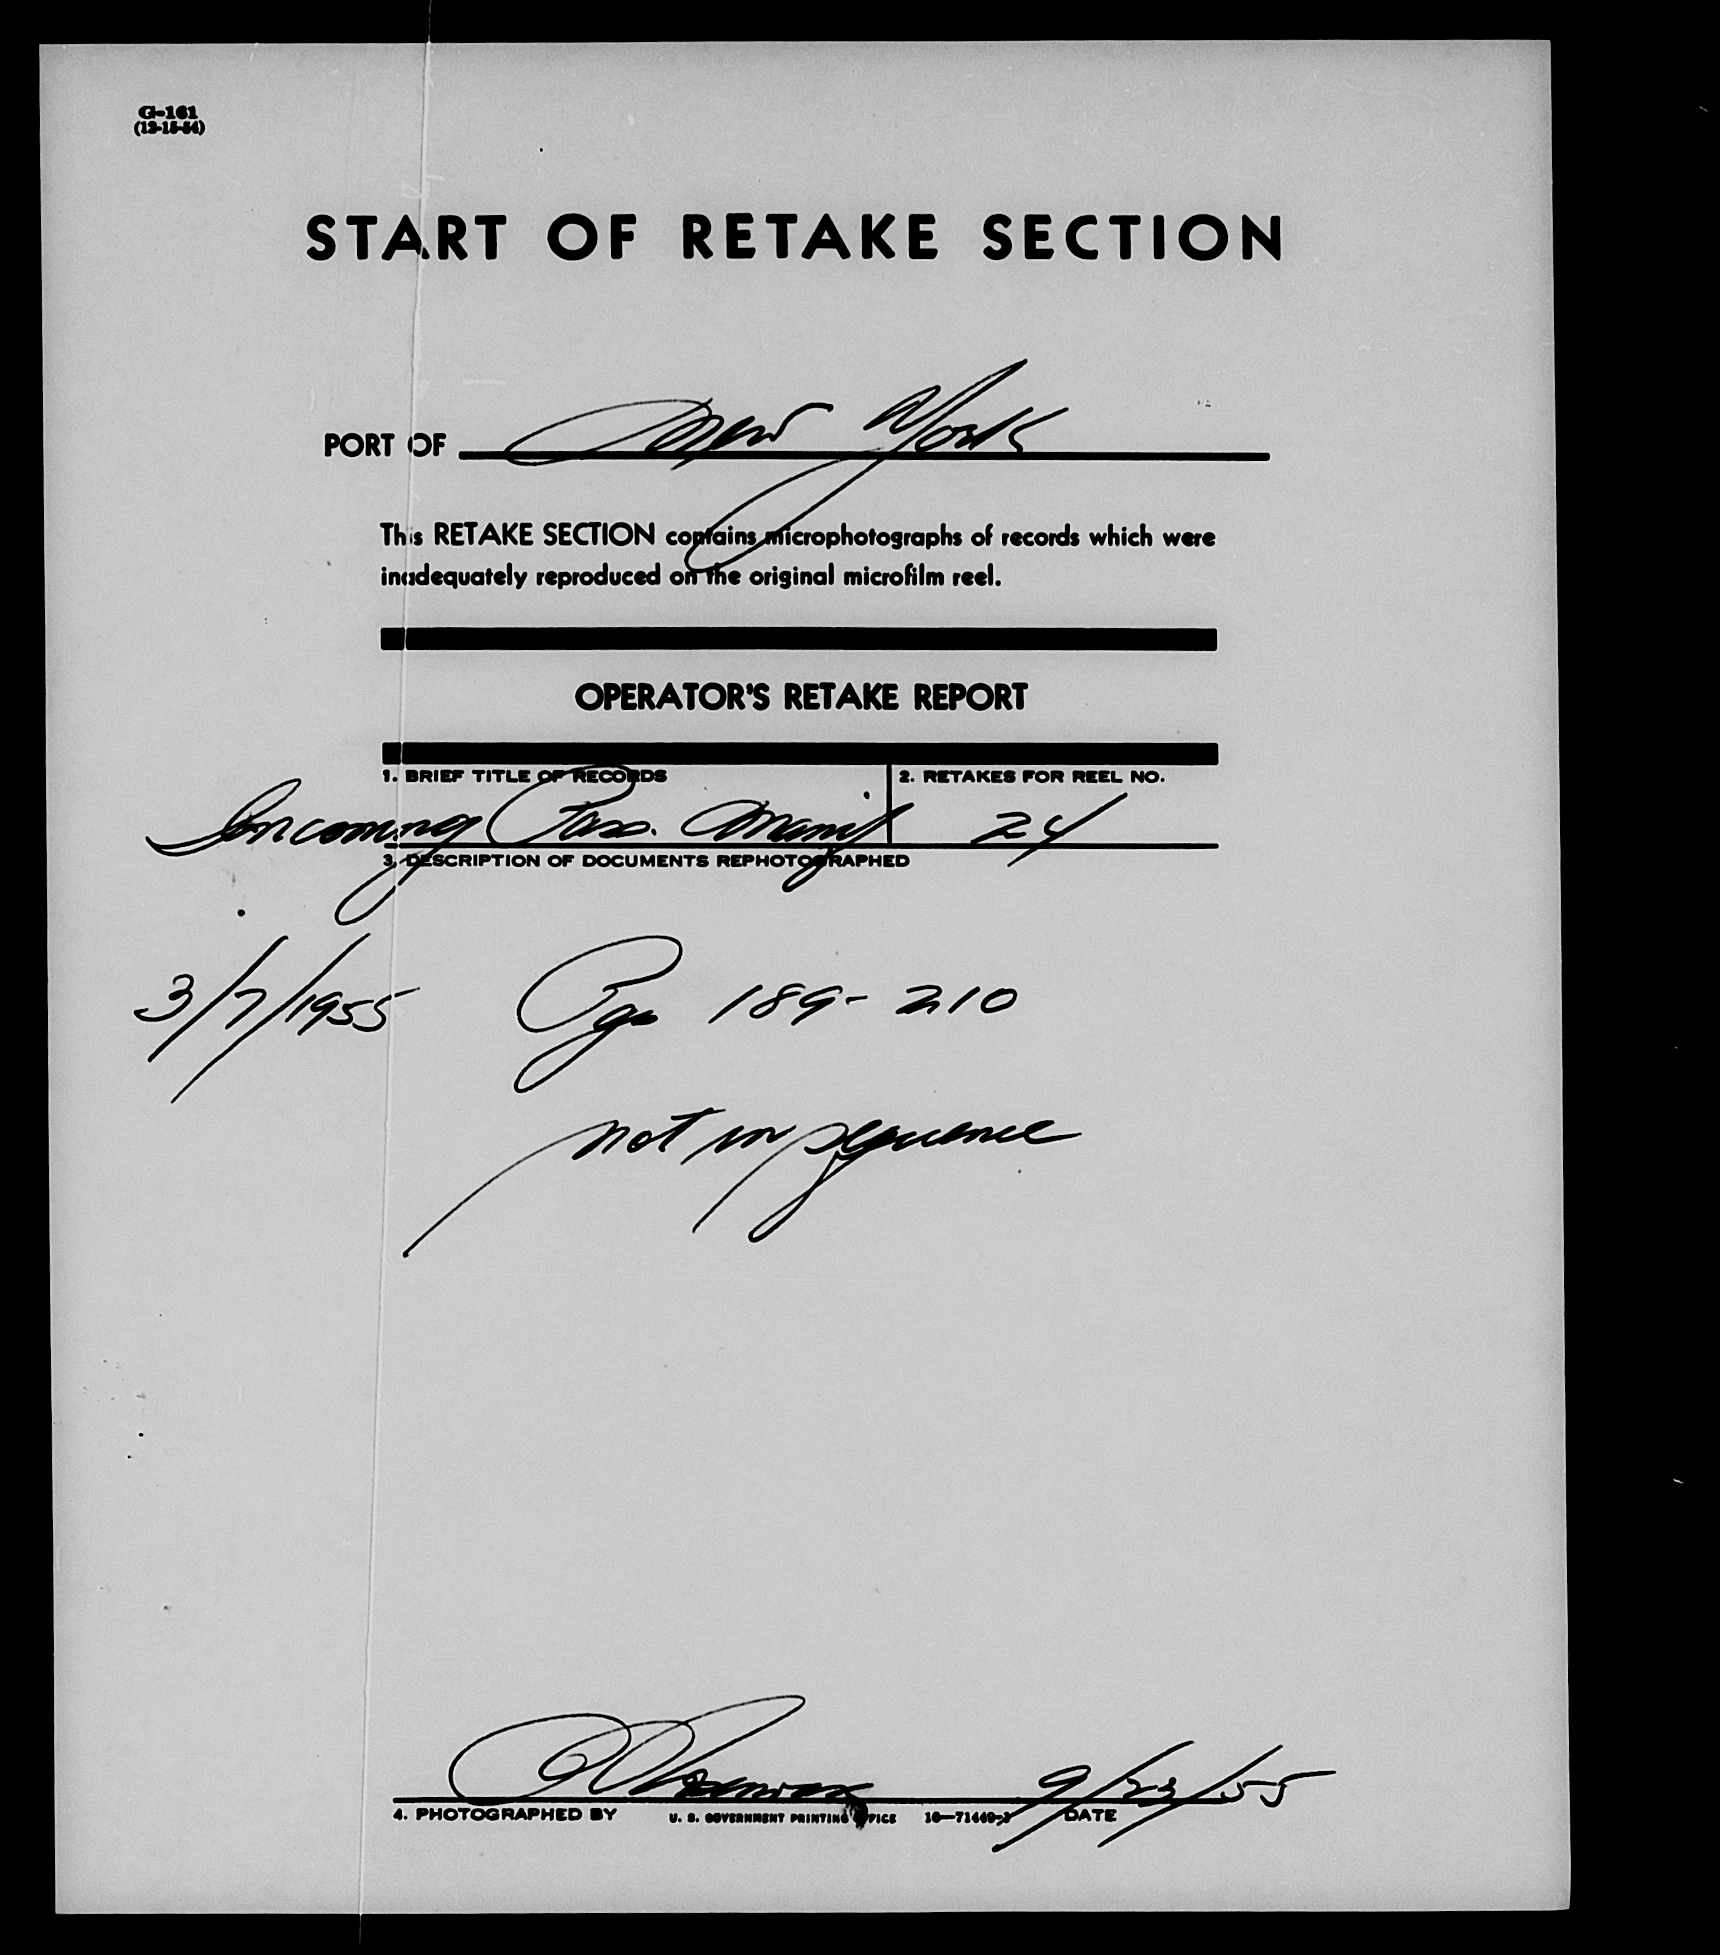 G-161
(12-15-54)
START OF RETAKE SECTION
PORT OF New York
This RETAKE SECTION contains microphotographs of records which were
inadequately reproduced on the original microfilm reel.
OPERATOR'S RETAKE REPORT
1. BRIEF TITLE OF RECORDS 2. RETAKES FOR REEL NO.
Incoming Pass. Manif 24
3. DESCRIPTION OF DOCUMENTS REPHOTOGRAPHED
3/7/1955 Pgs 189-210
not in sequence
9/23/55
4. PHOTOGRAPHED BY U. S. GOVERNMENT PRINTING OFFICE 16—71469-1 DATE